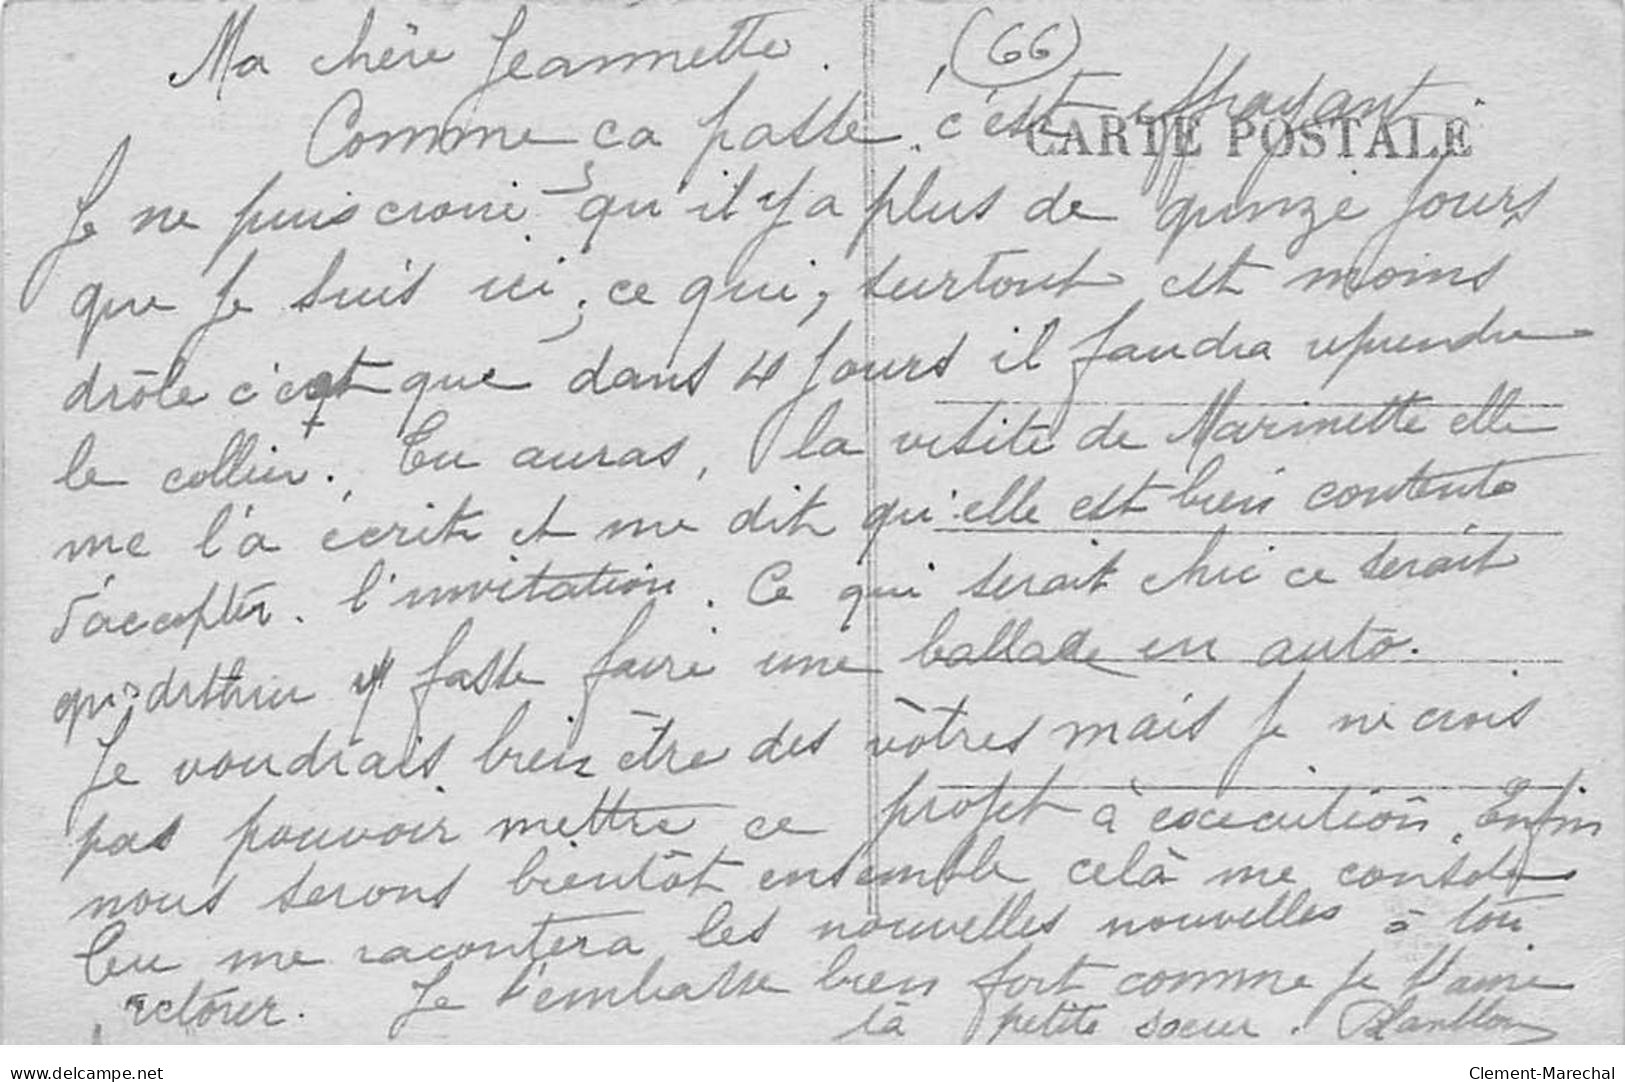 (66)
Ma chère Jeannette.
Comme ça passe, c'est effrayant
CARTE POSTALE
Je ne puis croire qu'il y a plus de quinze jours
que je suis ici, ce qui, surtout est moins
drôle c'est que dans 4 jours il faudra reprendre
le collier. Tu auras, la visite de Marinette elle
me l'a écrit et me dit qu'elle est bien contente
d'accepter l'invitation. Ce qui serait chic ce serait
qu' fasse faire une ballade en auto.
Je voudrais bien être des vôtres mais je ne crois
pas pouvoir mettre ce projet à exécution. Enfin
nous serons bientôt ensemble celà me console
Tu me racontera les nouvelles nouvelles à ton
retour. Je t'embrasse bien fort comme je t'aime
ta petite soeur.
delcampe.net
Clement-Marechal